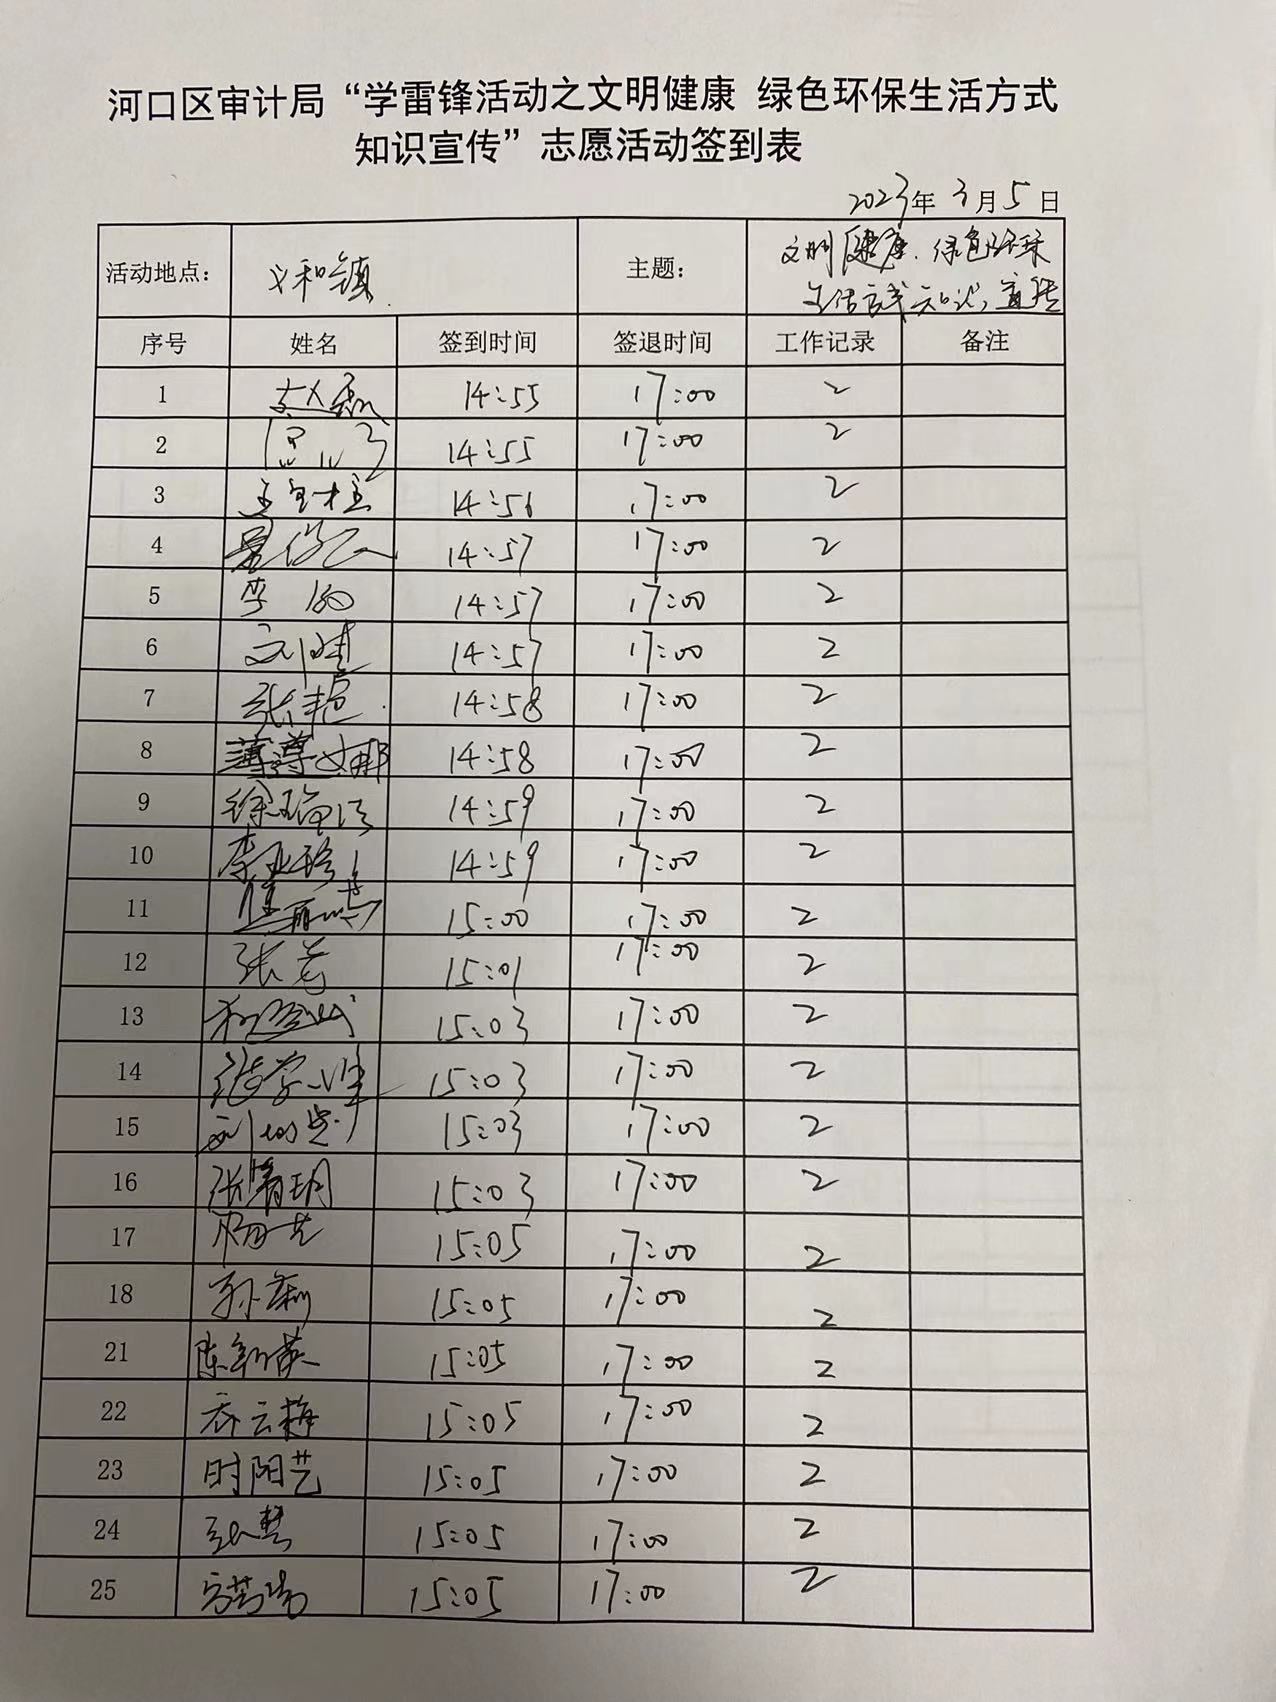 河口区审计局“学雷锋活动之文明健康 绿色环保生活方式
知识宣传”志愿活动签到表
2023年3月5日
活动地点： 义和镇 主题： 文明健康、绿色环保
生活方式知识宣传
序号 姓名 签到时间 签退时间 工作记录 备注
1 14:55 17:00 2
2 14:55 17:00 2
3 14:56 17:00 2
4 14:57 17:00 2
5 14:57 17:00 2
6 14:57 17:00 2
7 张艳 14:58 17:00 2
8 14:58 17:00 2
9 14:59 17:00 2
10 14:59 17:00 2
11 15:00 17:00 2
12 张芳 15:01 17:00 2
13 15:03 17:00 2
14 15:03 17:00 2
15 15:03 17:00 2
16 张清玥 15:03 17:00 2
17 15:05 17:00 2
18 孙莉 15:05 17:00 2
21 陈新英 15:05 17:00 2
22 乔云梅 15:05 17:00 2
23 时阳艺 15:05 17:00 2
24 15:05 17:00 2
25 15:05 17:00 2